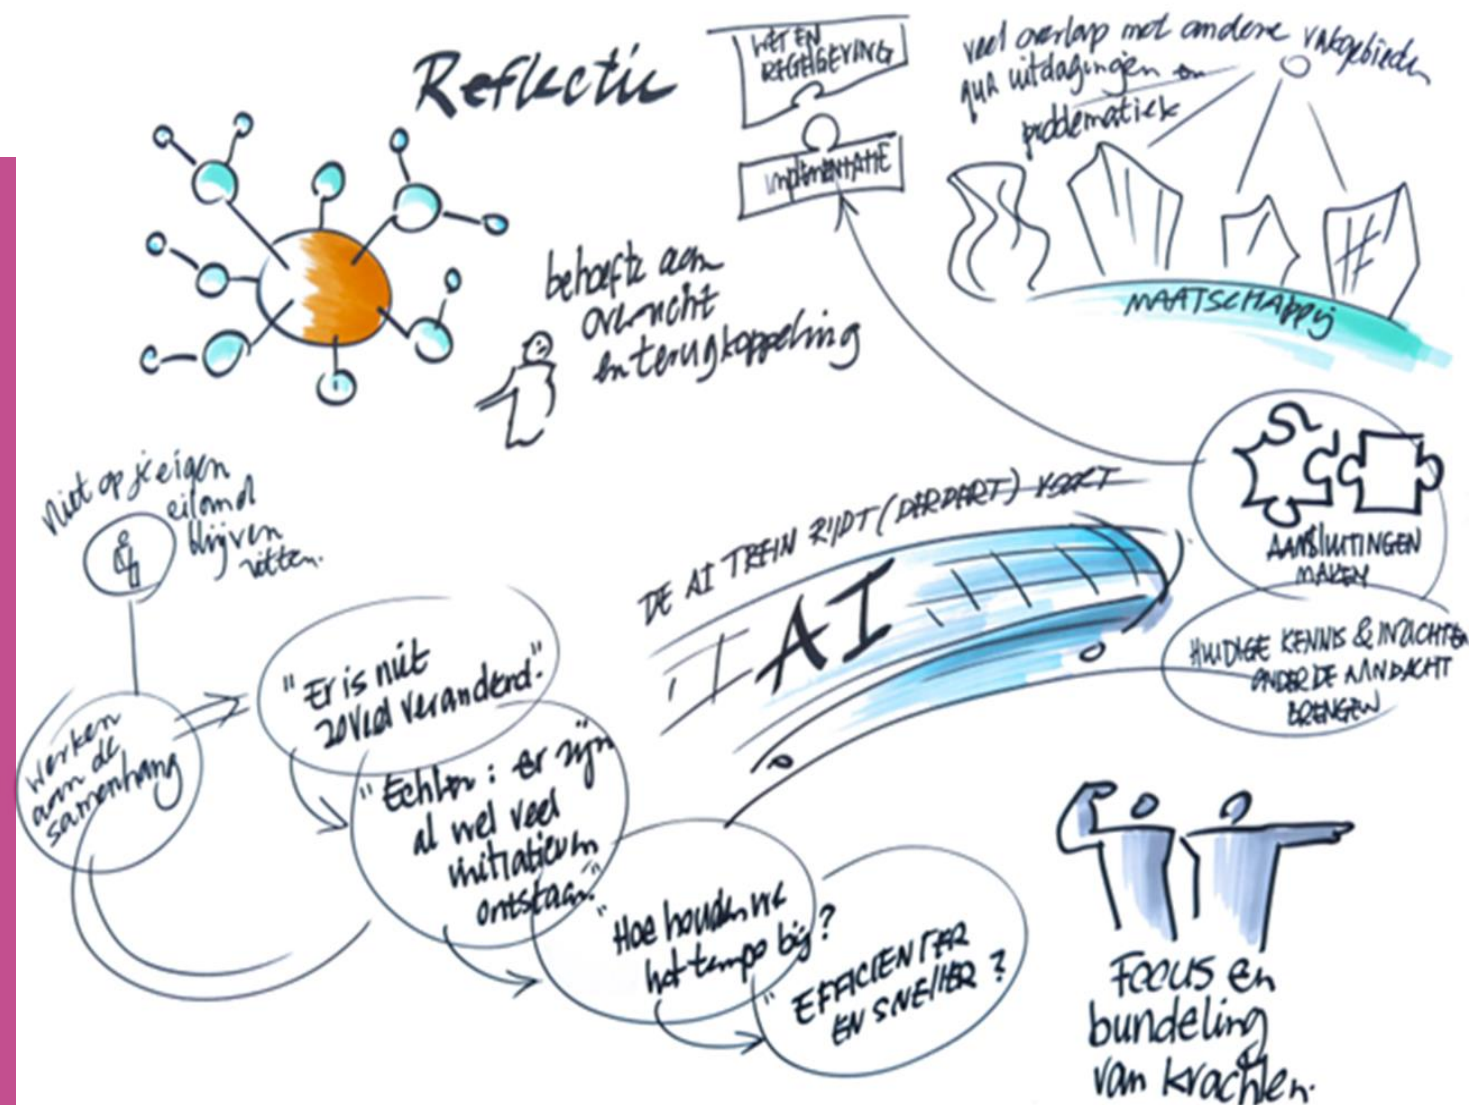 Reflectie
WET EN
REGELGEVING
IMPLEMENTATIE
veel overlap met andere vakgebieden
qua uitdagingen en
problematiek
MAATSCHAPPIJ
behoefte aan
overzicht
en terugkoppeling
niet op je eigen
eiland
blijven
zitten.
werken
aan de
samenhang
"Er is niet
zoveel veranderd."
"Echter: er zijn
al wel veel
initiatieven
ontstaan."
"Hoe houden we
het tempo bij?
"EFFICIENTER
EN SNELLER?
DE AI TREIN RIJDT (DENDERT) VOORT
AI
AANSLUITINGEN
MAKEN
HUIDIGE KENNIS & INZICHTEN
ONDER DE AANDACHT
BRENGEN
Focus en
bundeling
van krachten.